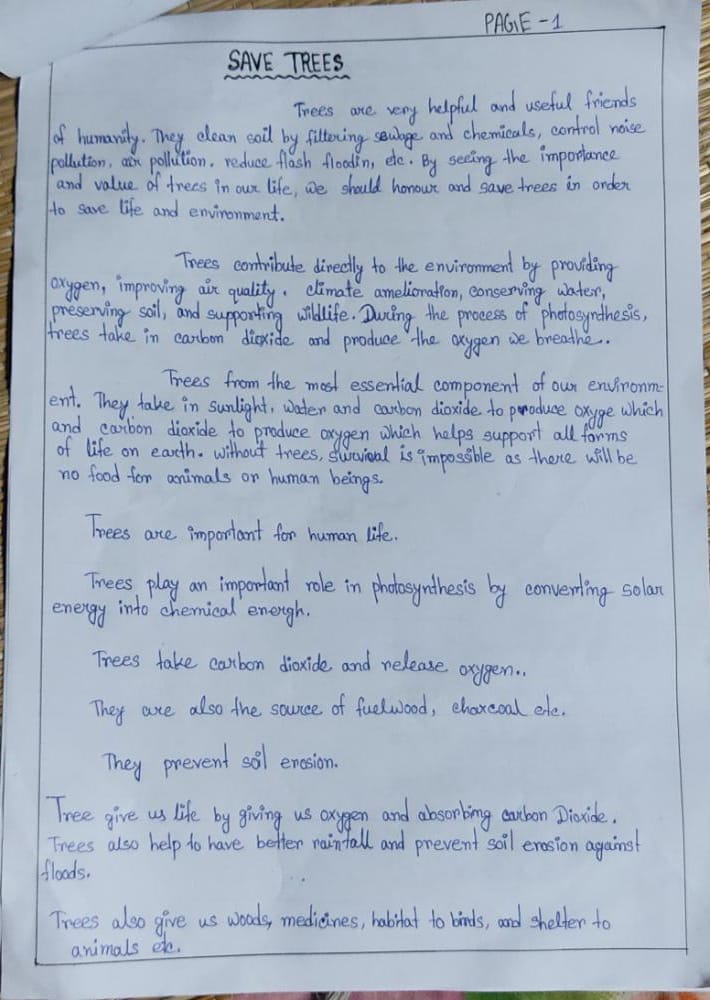 PAGE-1
SAVE TREES
Trees are very helpful and useful friends
of humanity. They clean soil by filtering sewage and chemicals, control noise
pollution, air pollution. reduce flash floodin, etc. By seeing the importance
and value of trees in our life, we should honour and save trees in order
to save life and environment.
Trees contribute directly to the environment by providing
oxygen, improving air quality. climate amelioration, conserving water,
preserving soil, and supporting wildlife. During the process of photosynthesis,
trees take in carbon dioxide and produce the oxygen we breathe..
Trees from the most essential component of our environm-
ent. They take in sunlight, water and carbon dioxide to produce oxyge which
and carbon dioxide to produce oxygen which helps support all forms
of life on earth. without trees, survival is impossible as there will be
no food for animals or human beings.
Trees are important for human life.
Trees play an important role in photosynthesis by converting solar
energy into chemical energh.
Trees take carbon dioxide and release oxygen..
They are also the source of fuelwood, charcoal etc.
They prevent soil erosion.
Tree give us life by giving us oxygen and absorbing carbon Dioxide.
Trees also help to have better rainfall and prevent soil erosion against
floods.
Trees also give us woods, medicines, habitat to birds, and shelter to
animals etc.